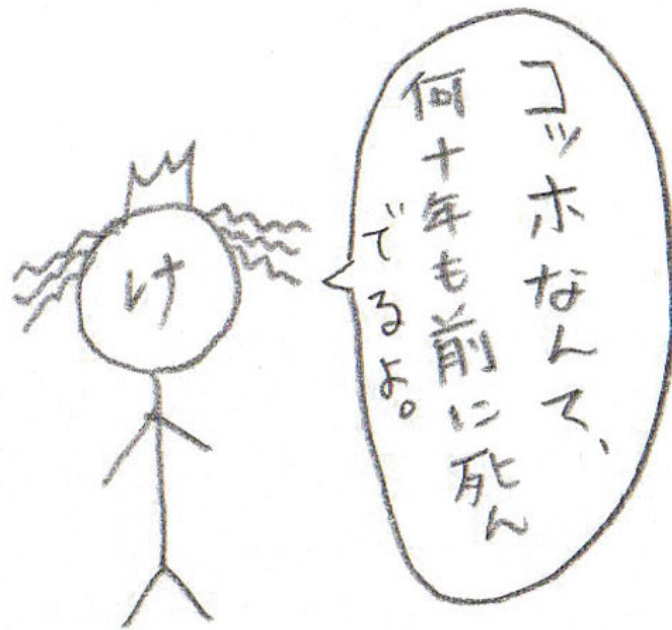 コッホなんて、
何十年も前に死ん
でるよ。
け